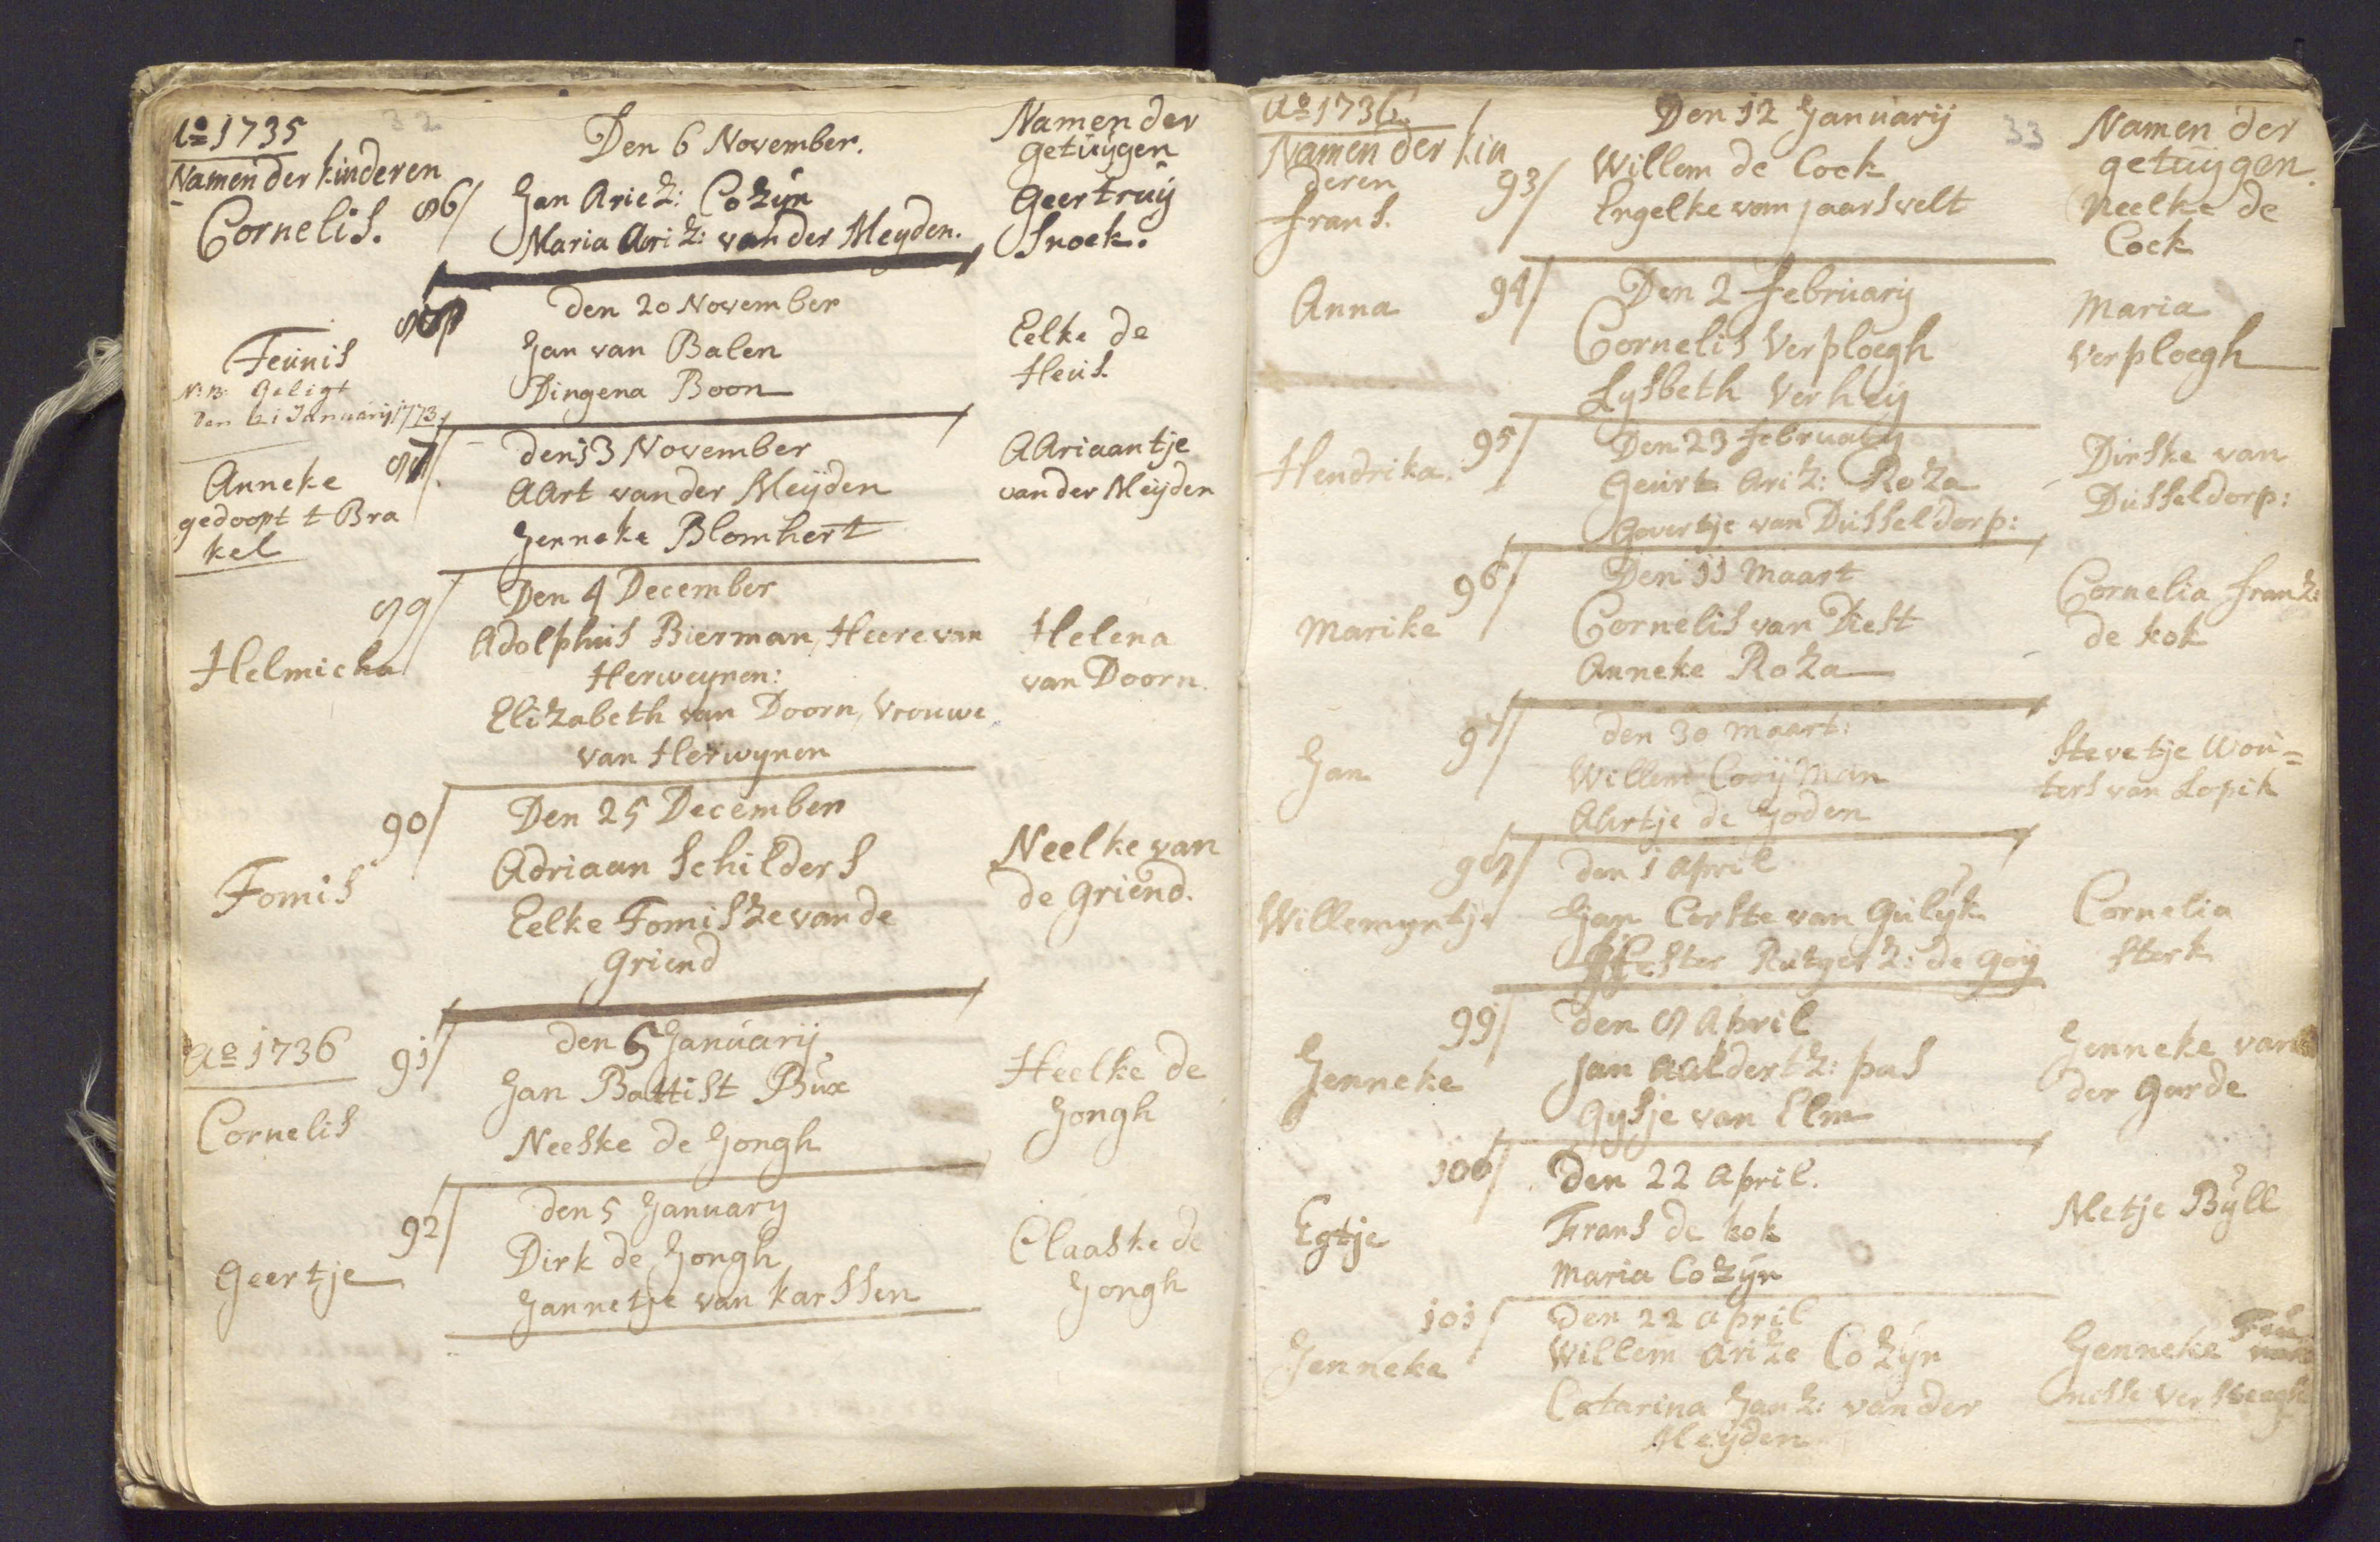 Ao 1735
32
Den 6 November.
Namen der
getuijgen
Namen der kinderen
Cornelis.
86/
Jan Ariez: Cozijn
Maria Ariz: van der Meyden.
Geertruij
Snoek.
den 20 November
Teunis
Jan van Balen
Dingena Boon
Eelke de
Heus.
N:B: Geligt
den 21 Januarij 1773
den 13 November
Anneke
gedoopt t Bra
kel
AArt van der Meijden
Jenneke Blomhert
AAriaantje
van der Meijden
89/
Den 4 December
Helmicha
Adolphus Bierman, Heere van
Herweynen:
Elizabeth van Doorn, Vrouwe
van Herwynen
Helena
van Doorn
90/
Den 25 December
Tomis
Adriaan Schilders
Eelke Tomisze van de
Griend
Neelke van
de Griend.
Ao 1736
91/
den 5 Januarij
Cornelis
Jan Battist Bux
Neeske de Jongh
Heelke de
Jongh
92/
den 5 January
Geertje
Dirk de Jongh
Jannetje van Karssen
Claaske de
Jongh
Ao 1736.
33
Den 12 Januarij
Namen der
getuijgen.
Namen der kin
deren
Frans.
93/
Willem de Cock
Engelke van jaarsvelt
Neelke de
Cock
94/
Den 2 februarij
Anna
Cornelis Verploegh
Lysbeth Verheij
Maria
Verploegh
95/
Den 23 februarij
Hendrika.
Geurt Ariz: Roza
Govertje van Dusseldorp:
Dirske van
Dusseldorp:
96/
Den 11 Maart
Marike
Cornelis van Diest
Anneke Roza
Cornelia franz:
de kok
97/
den 30 Maart:
Jan
Willem Cooijman
AArtje de Joden
Stevetje Wou=
ters van Lopik
98/
den 1 April
Willemyntje
Jan Corste van Gulijk
Hester Rutgerz: de Goij
Cornelia
Sterk
99/
den 8 April
Jenneke
Jan Aaldertz: pas
Gysje van Elm
Jenneke van
der Garde
100/
Den 22 April.
Egtje
Frans de kok
Maria Cozijn
Metje Bijll
101/
Den 22 April
Jenneke
Willem Arize Cozijn
Catarina Janz: van der
Meijden
Jenneke Teu
nisse Versteegh